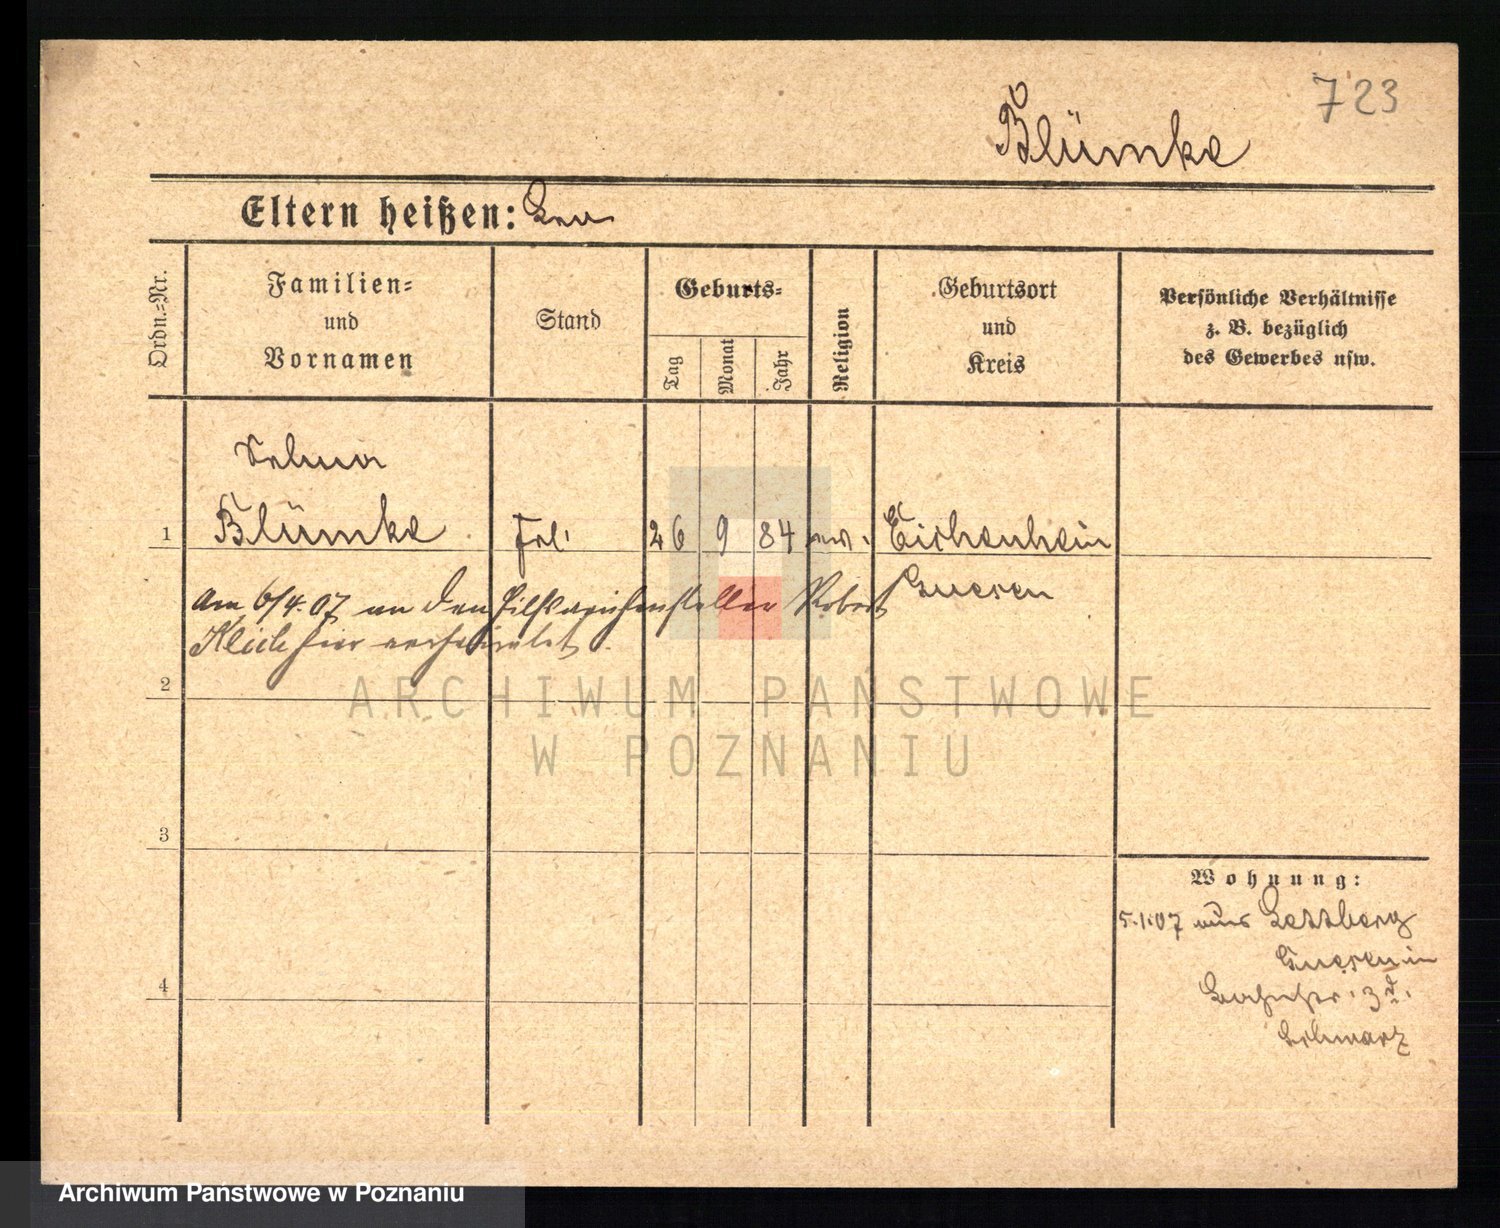 723
Blümke
Eltern heißen:
Ordn.-Nr.
Familien-
und
Vornamen
Stand
Geburts-
Tag
Monat
Jahr
Religion
Geburtsort
und
Kreis
Persönliche Verhältnisse
z. B. bezüglich
des Gewerbes usw.
Selma
1 Blümke Frl. 26 9 84 ev. Eichenhain
Gnesen
Am 6/4. 07 an den Hilfsweichensteller Robert
Klich hier verheiratet.
2
3
4
Wohnung:
5.1.07 aus Letzberg
Gnesen in
Bahnhstr. 3
Schwarz
ARCHIWUM PAŃSTWOWE
W POZNANIU
Archiwum Państwowe w Poznaniu